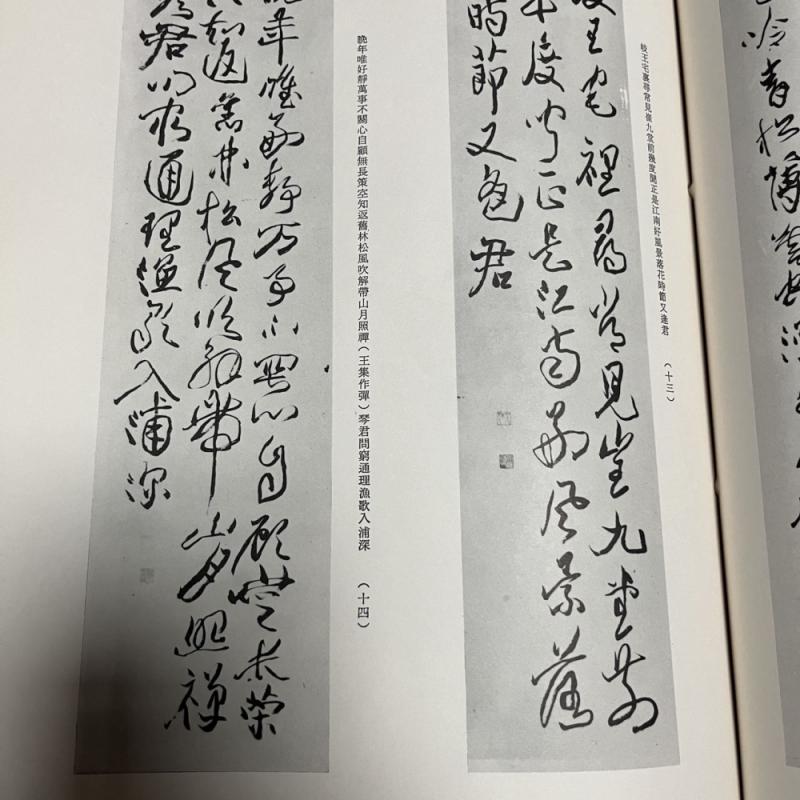 吟青松薄
岐王宅裏尋常見崔九堂前幾度聞正是江南好風景落花時節又逢君（十三）
岐王宅裡尋常見崔九堂前
度聞正是江南好風景落
時節又逢君
晚年唯好靜萬事不關心自顧無長策空知返舊林松風吹解帶山月照禪（王集作彈）琴君問窮通理漁歌入浦深（十四）
年惟好靜萬事不關心自顧無長策
知返舊林松風吹解帶山月照禪
君問窮通理漁歌入浦深